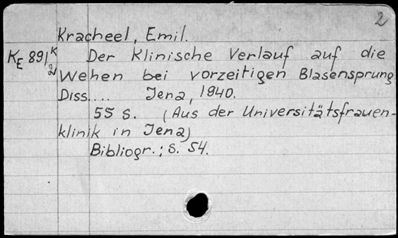 2
Kracheel, Emil.
KE 891 K/2 Der Klinische Verlauf auf die
Wehen bei vorzeitigen Blasensprung
Diss.... Jena, 1940.
55 S. (Aus der Universitätsfrauen-
klinik in Jena)
Bibliogr.; S. 54.